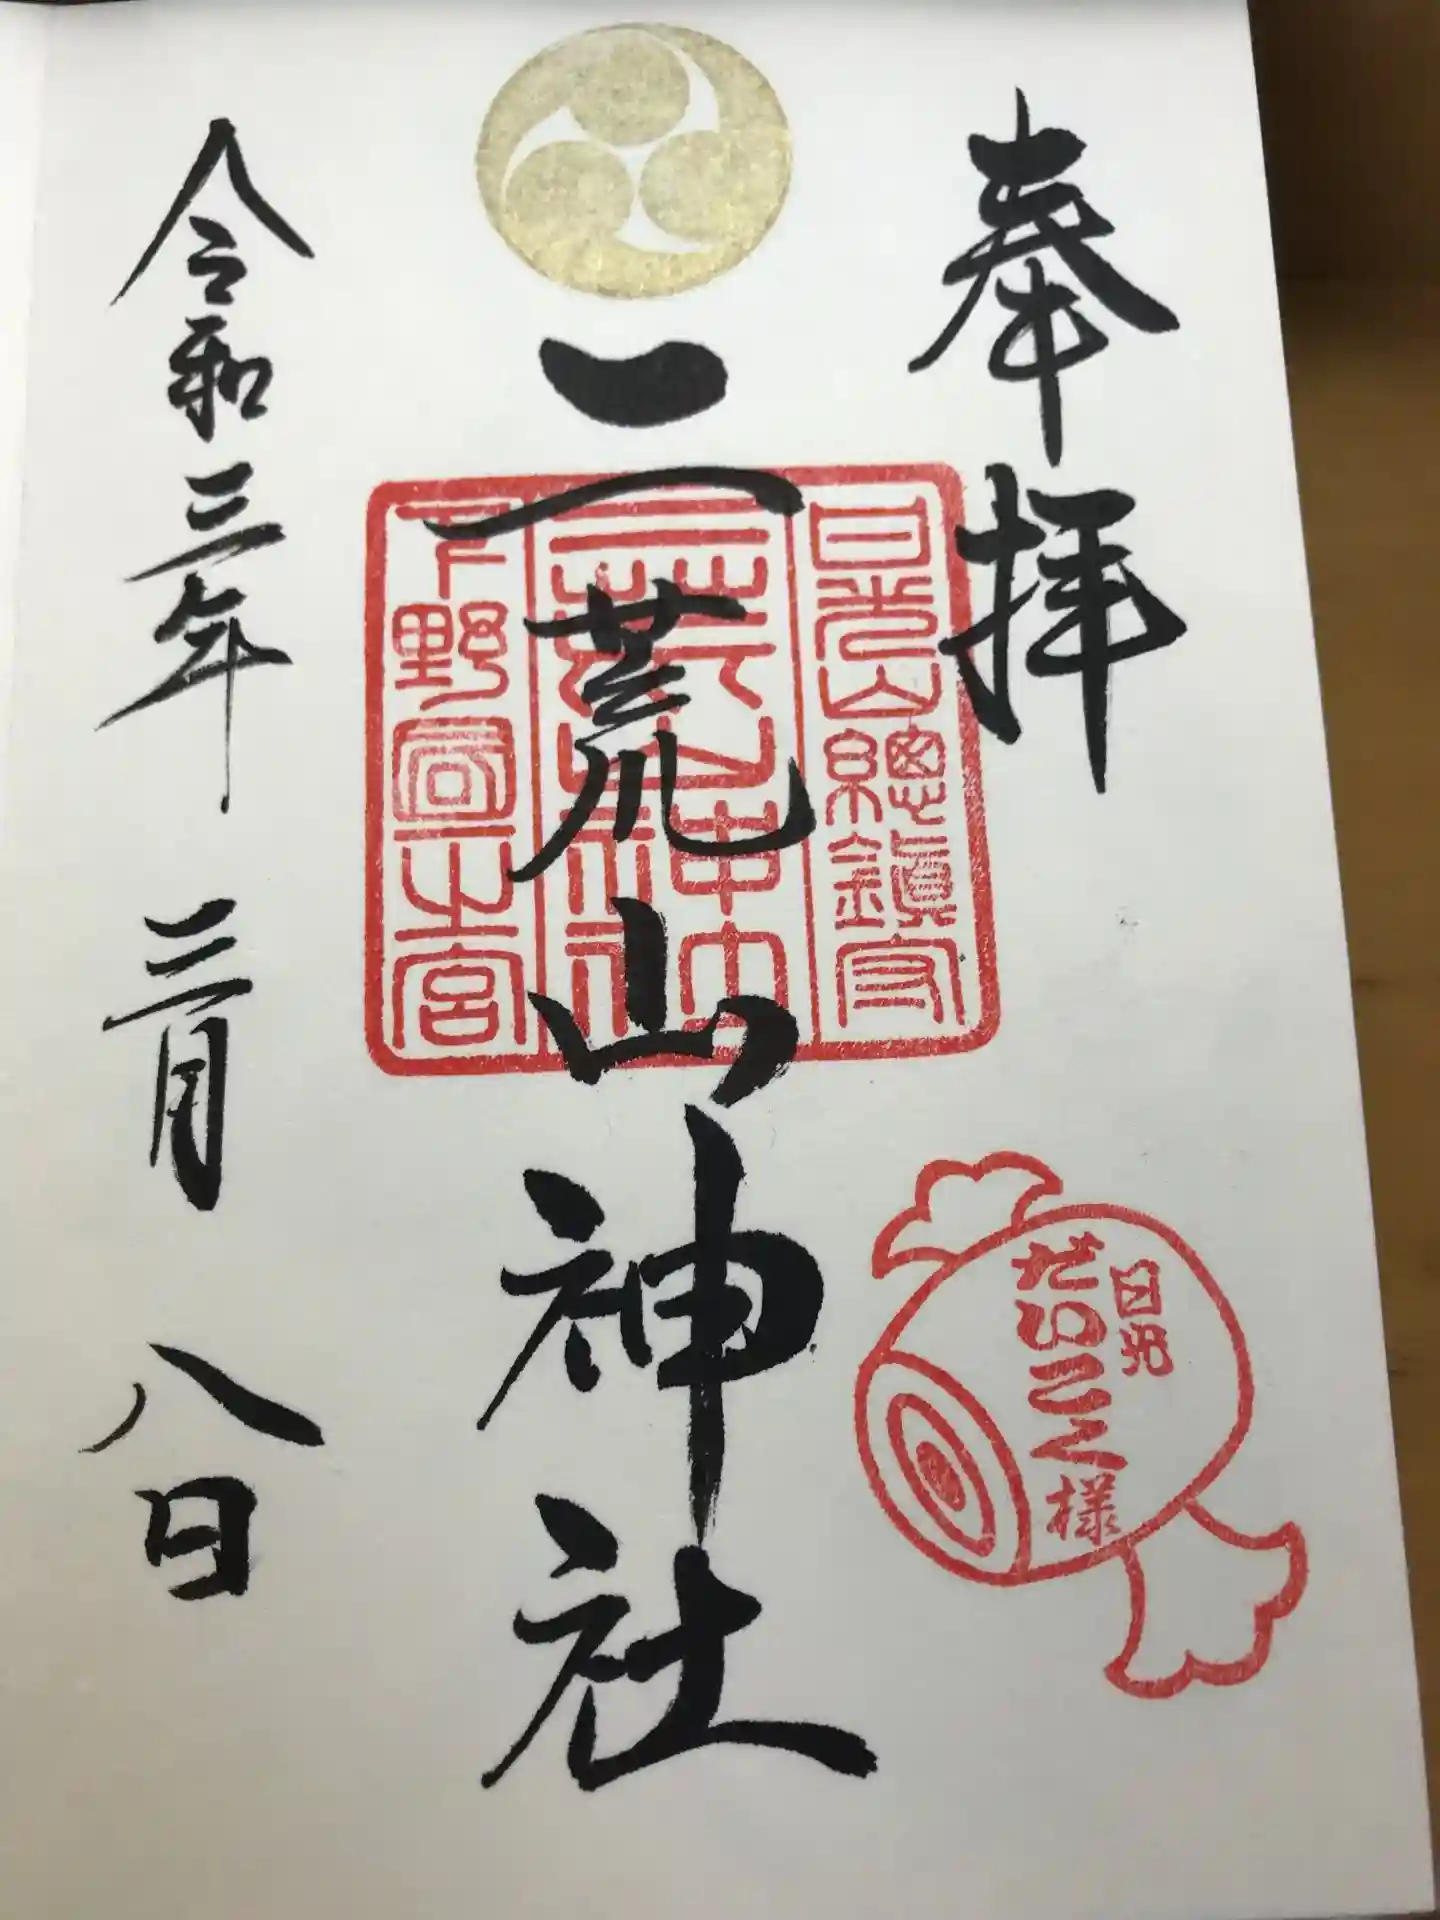 奉拝
日光山總鎮守
二荒山神社
二荒山神社
下野國一之宮
日光
だいこく様
令和三年三月八日